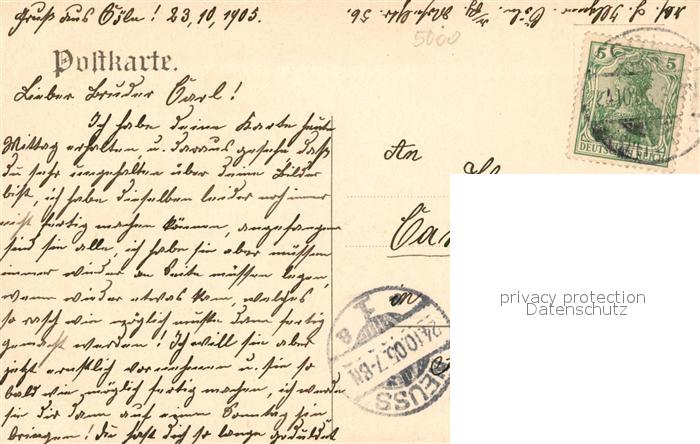 Gruß aus Cöln! 23,10,1905.
Postkarte.
5000
Lieber Bruder Carl!
Ich habe deine Karte heute
Mittag erhalten u. daraus gesehe daß
du sehr ungehalten über deine Bilder
bist, ich habe dieselben leider noch immer
nicht fertig machen können, angefangen
sind sie alle, ich habe sie aber müssen
immer wieder an Seite müssen legen,
wenn wieder etwas kam, welches
so rasch wie möglich mußte dann fertig
gemacht werden! Ich will sie aber
jetzt ernstlich vornehmen u. sie so
bald wie möglich fertig machen, ich werde
sie dir dann auf einen Sonntag hin
bringen! du hast dich so lange geduldet
5 5
DEUTSCHES REICH
An
in
NEUSS
24.10.05.7-8N.
privacy protection
Datenschutz